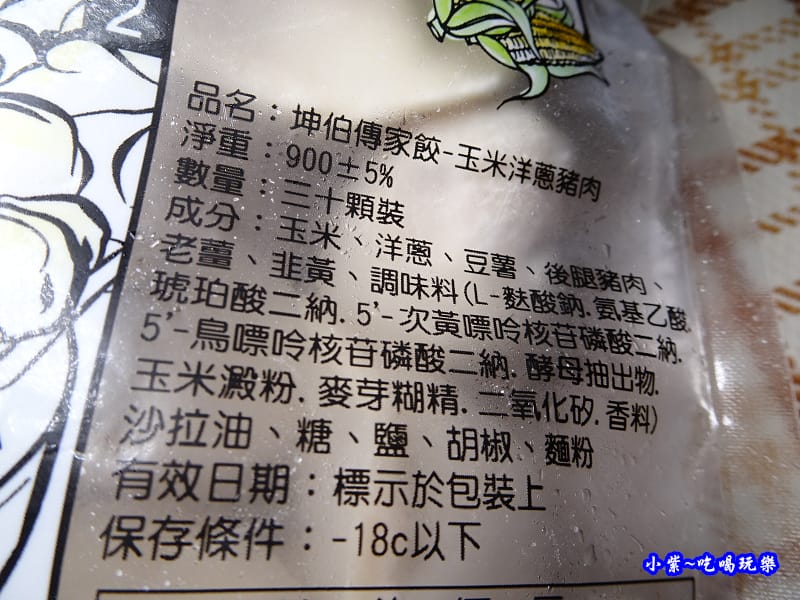 品名：坤伯傳家餃-玉米洋蔥豬肉
淨重：900±5%
數量：三十顆裝
成分：玉米、洋蔥、豆薯、後腿豬肉、
老薑、韭黃、調味料(L-麩酸鈉.氨基乙酸.
琥珀酸二納.5'-次黃嘌呤核苷磷酸二納.
5'-鳥嘌呤核苷磷酸二納.酵母抽出物.
玉米澱粉.麥芽糊精.二氧化矽.香料)
沙拉油、糖、鹽、胡椒、麵粉
有效日期：標示於包裝上
保存條件：-18c以下
小紫~吃喝玩樂